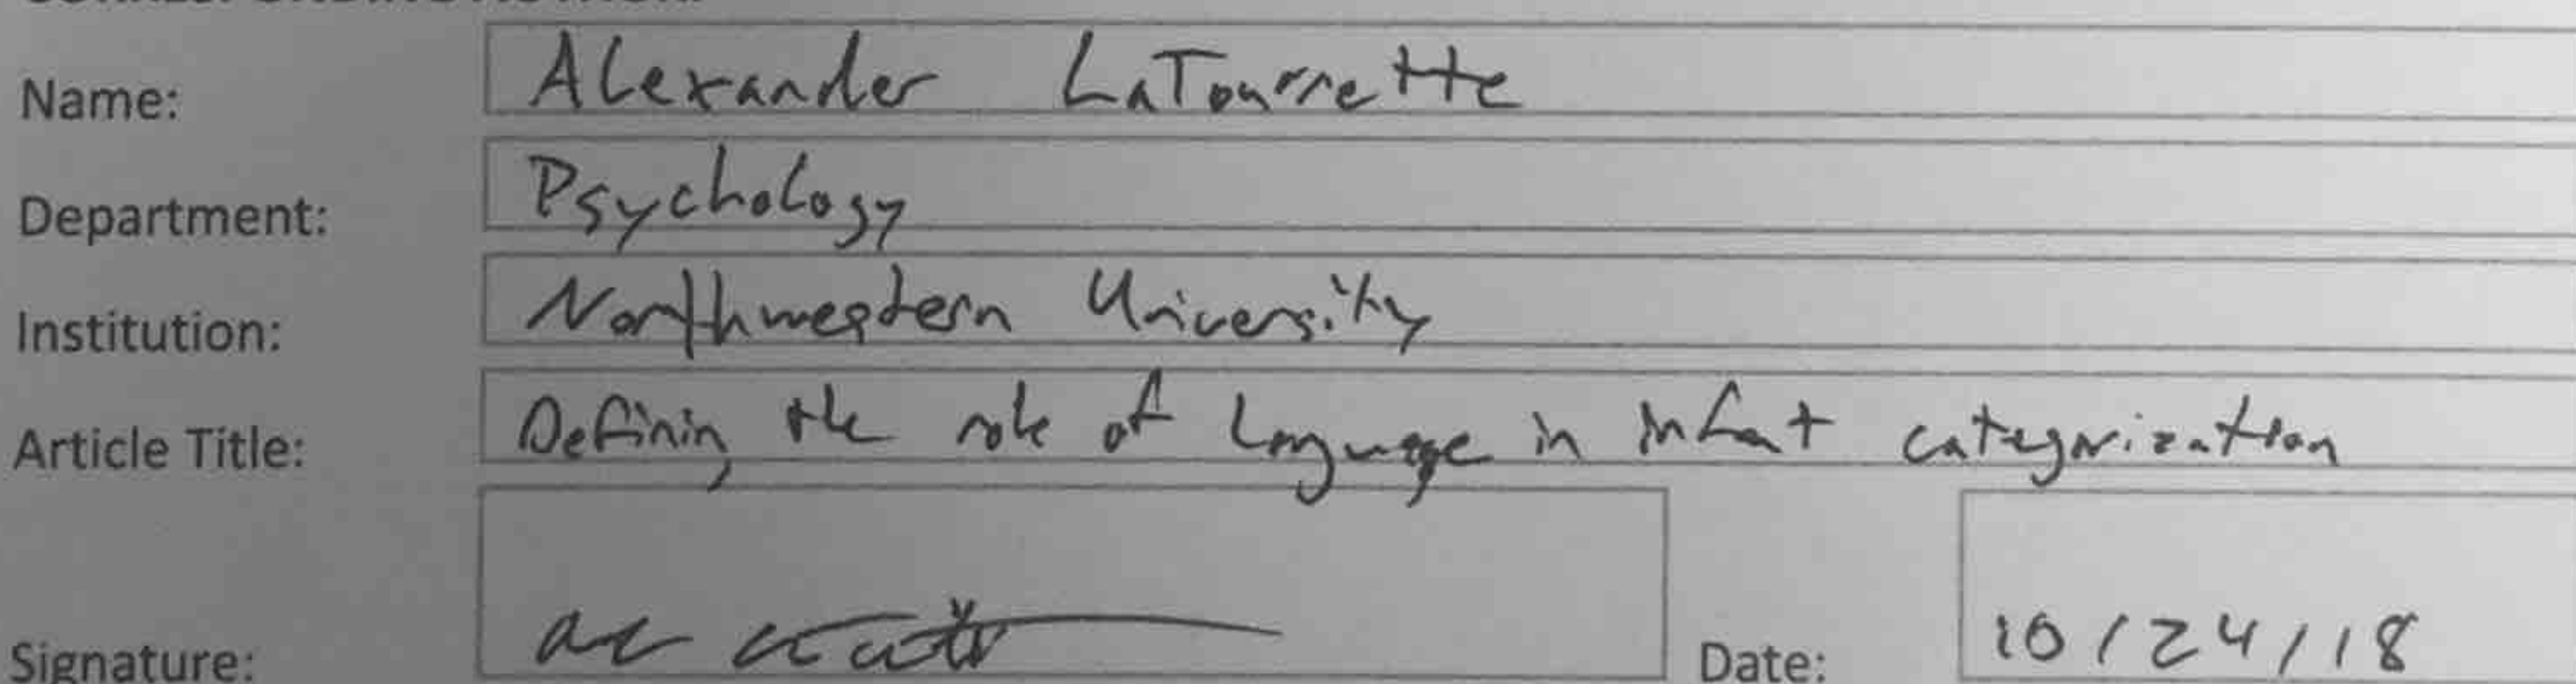 Name: Alexander LaTourrette
Department: Psychology
Institution: Northwestern University
Article Title: Defining the role of language in infant categorization
Signature: Date: 10/24/18